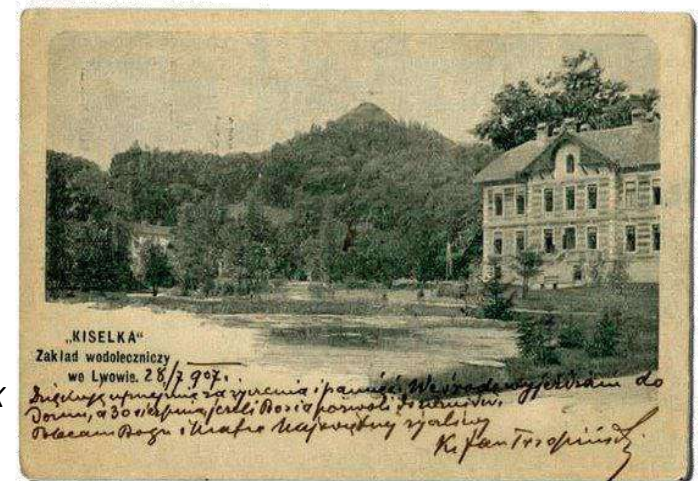 „KISELKA“
Zakład wodoleczniczy
we Lwowie. 28/7 907.
Dziękuję uprzejmie za życzenia i pamięć. We środę wyjeżdżam do
Domu, a 30 sierpnia, jeśli Bozia pozwoli
Polecam Bogu i Matce Najświętszej
K